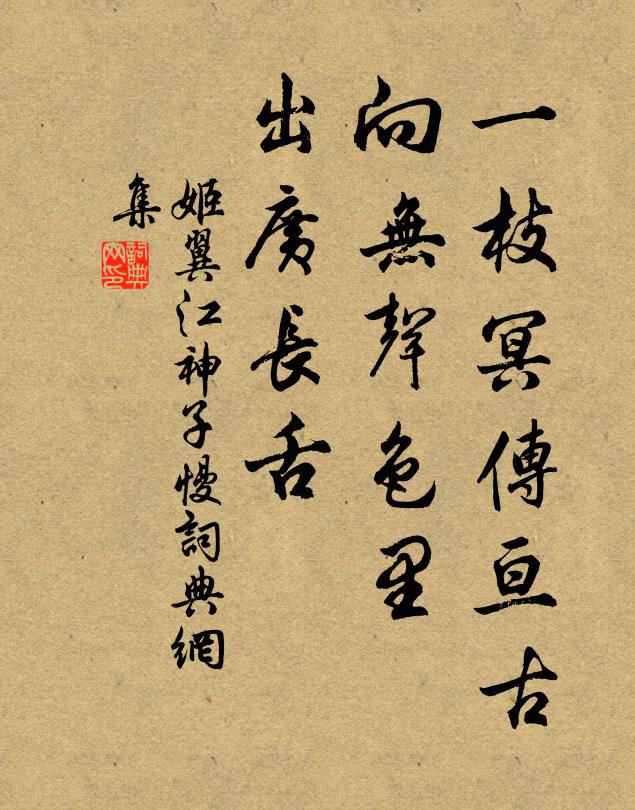 一枝冥傳亘古
向無聲色里
出廣長舌
姬翼江神子慢詞典網
集
詞典网印